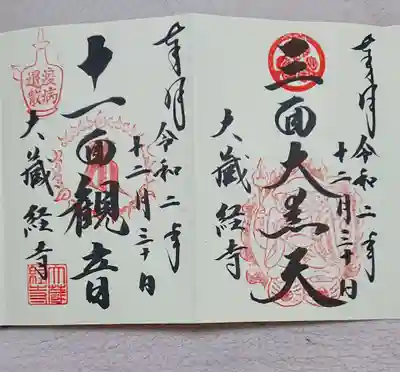 奉拝 令和二年
十二月三十日
三面大黒天
大蔵経寺
奉拝 令和二年
十二月三十日
十一面観音
大蔵経寺
疫病
退散